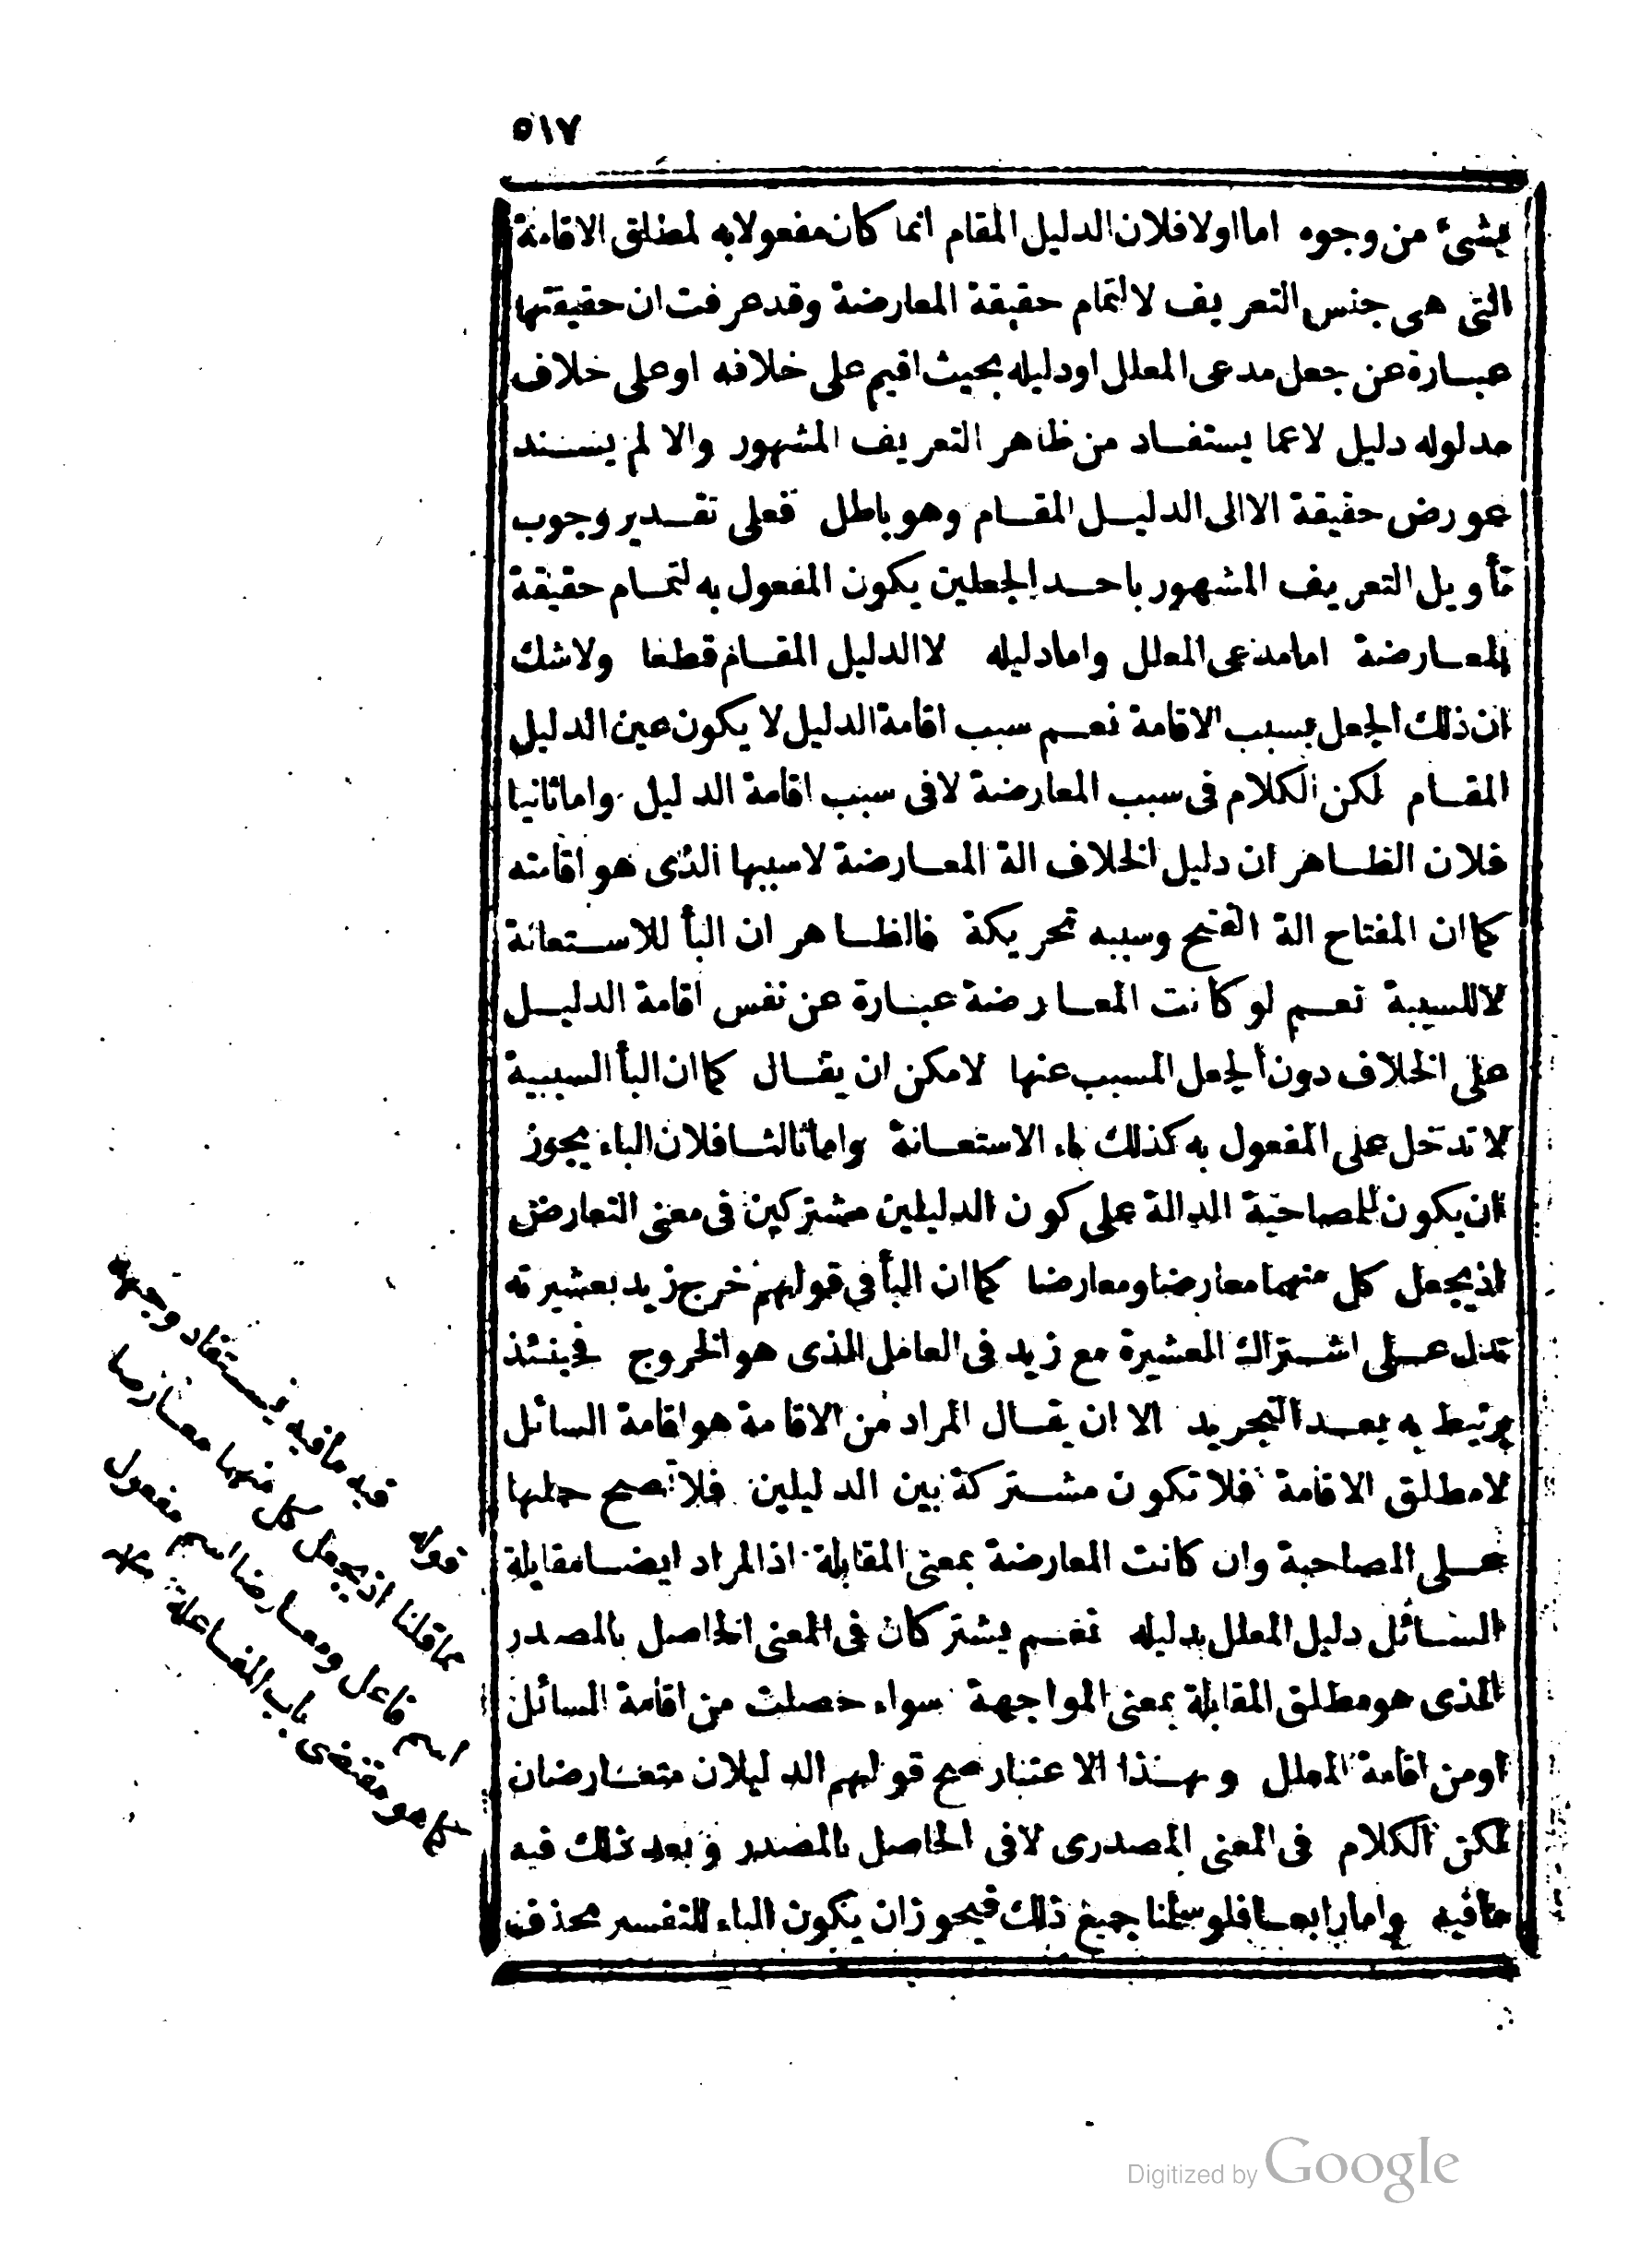 ٥١٧
بشئ من وجوه اما اولا فلان الدليل المقام انما كان مفعولا به لمطلق الاقامة
التى هى جنس التعريف لا لتمام حقيقة المعارضة وقد عرفت ان حقيقتها
عبارة عن جعل مدعى المعلل او دليله بحيث اقيم على خلافه او على خلاف
مدلوله دليل لا عما يستفاد من ظاهر التعريف المشهور والا لم يسند
عورض حقيقة الا الى الدليل المقام وهو باطل فعلى تقدير وجوب
تأويل التعريف المشهور باحد الجعلين يكون المفعول به لتمام حقيقة
المعارضة اما مدعى المعلل واما دليله لا الدليل المقام قطعا ولا شك
ان ذلك الجعل بسبب الاقامة نعم سبب اقامة الدليل لا يكون عين الدليل
المقام لكن الكلام فى سبب المعارضة لا فى سبب اقامة الدليل واما ثانيا
فلان الظاهر ان دليل الخلاف الة المعارضة لا سببها الذى هو اقامته
كما ان المفتاح الة الفتح وسببه تحريكة فالظاهر ان البأ للاستعانة
لا للسببة نعم لو كانت المعارضة عبارة عن نفس اقامة الدليل
على الخلاف دون الجعل المسبب عنها لامكن ان يقال كما ان البأ السببية
لا تدخل على المفعول به كذلك باء الاستعانة واما ثالثا فلان الباء يجوز
ان يكون للمصاحبة الدالة على كون الدليلين مشتركين فى معنى التعارض
اذ يجعل كل منهما معارضا ومعارضا كما ان البأ فى قولهم خرج زيد بعشيرته
تدل على اشتراك العشيرة مع زيد فى العامل الذى هو الخروج فحينئذ
يرتبط به بعد التجريد الا ان يقال المراد من الاقامة هو اقامة السائل
لا مطلق الاقامة فلا تكون مشتركة بين الدليلين فلا تصح حملها
على المصاحبة وان كانت المعارضة بمعنى المقابلة اذ المراد ايضا مقابلة
السائل دليل المعلل بدليله نعم يشتركان فى المعنى الحاصل بالمصدر
الذى هو مطلق المقابلة بمعنى المواجهة سواء حصلت من اقامة السائل
او من اقامة المعلل وبهذا الاعتبار صح قولهم الدليلان متعارضان
لكن الكلام فى المعنى المصدرى لا فى الحاصل بالمصدر وبعد ذلك فيه
ما فيه واما رابعا فلو سلمنا جميع ذلك فيجوز ان يكون الباء للتفسير بحذف
قوله فيه ما فيه يستفاد وجهه
مما قلنا اذ يجعل كل منهما معارضا
اسم فاعل ومعارضا اسم مفعول
كما هو مقتضى باب المفاعلة منه
Digitized by Google